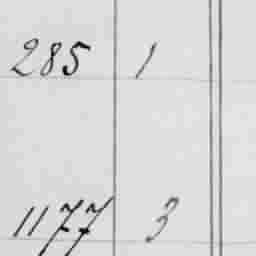 285 1
1177 3